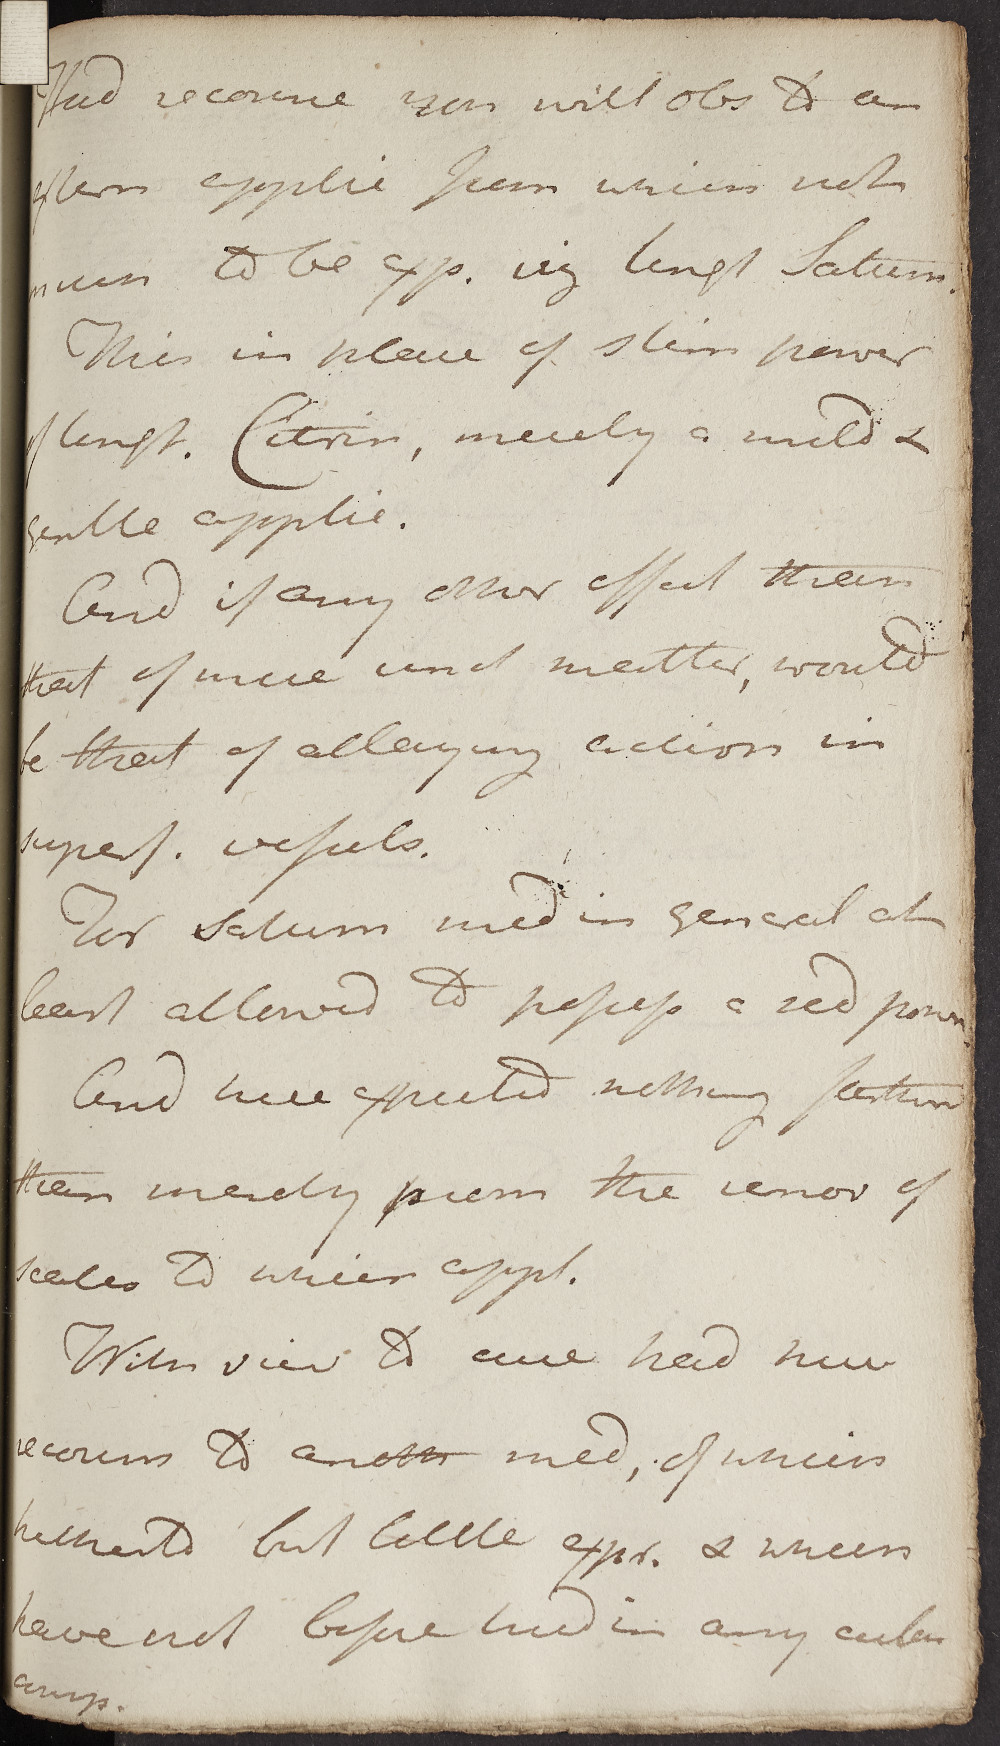 Had recourse you will obs to an
extern applic from which not
much to be exp. viz Ungt Saturn.
This in place of stim power
of Ungt. Citrin, merely a mild &
gentle applic.
And if any other effect than
that of mere unct matter, would
be that of allaying action in
superf. vessels.
For Saturn med in general at
least allowed to possess a sed power
And here expected nothing farther
than merely prom the remov of
scales to which appl.
With view to cure had here
recourse to anoth med, of which
hitherto but little expr. & which
have not before tried in any cutan